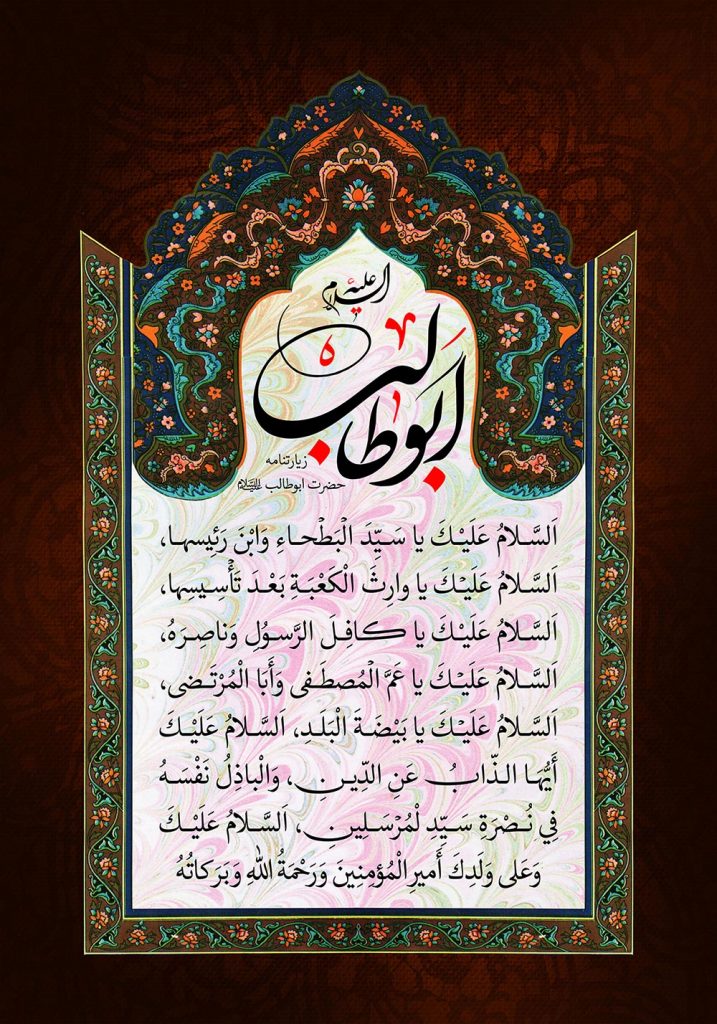 علیه السلام
ابوطالب
زیارتنامه
حضرت ابوطالب علیه‌السلام
اَلسَّلامُ عَلَيْكَ يا سَيِّدَ الْبَطْحاءِ وَابْنَ رَئيسِها،
اَلسَّلامُ عَلَيْكَ يا وارِثَ الْكَعْبَةِ بَعْدَ تَأْسِيسِها،
اَلسَّلامُ عَلَيْكَ يا كافِلَ الرَّسوُلِ وَناصِرَهُ،
اَلسَّلامُ عَلَيْكَ يا عَمَّ الْمُصطَفى وَأَبَا الْمُرْتَضى،
اَلسَّلامُ عَلَيْكَ يا بَيْضَةَ الْبَلَدِ، اَلسَّلامُ عَلَيْكَ
أَيُّهَا الذّابُ عَنِ الدِّينِ، وَالْباذِلُ نَفْسَهُ
فِي نُصْرَةِ سَيِّدِ لْمُرْسَلِينِ، اَلسَّلامُ عَلَيْكَ
وَعَلى وَلَدِكَ أَميرِالْمُؤمِنِينَ وَرَحْمَةُ اللهِ وَبَرَكاتُهُ